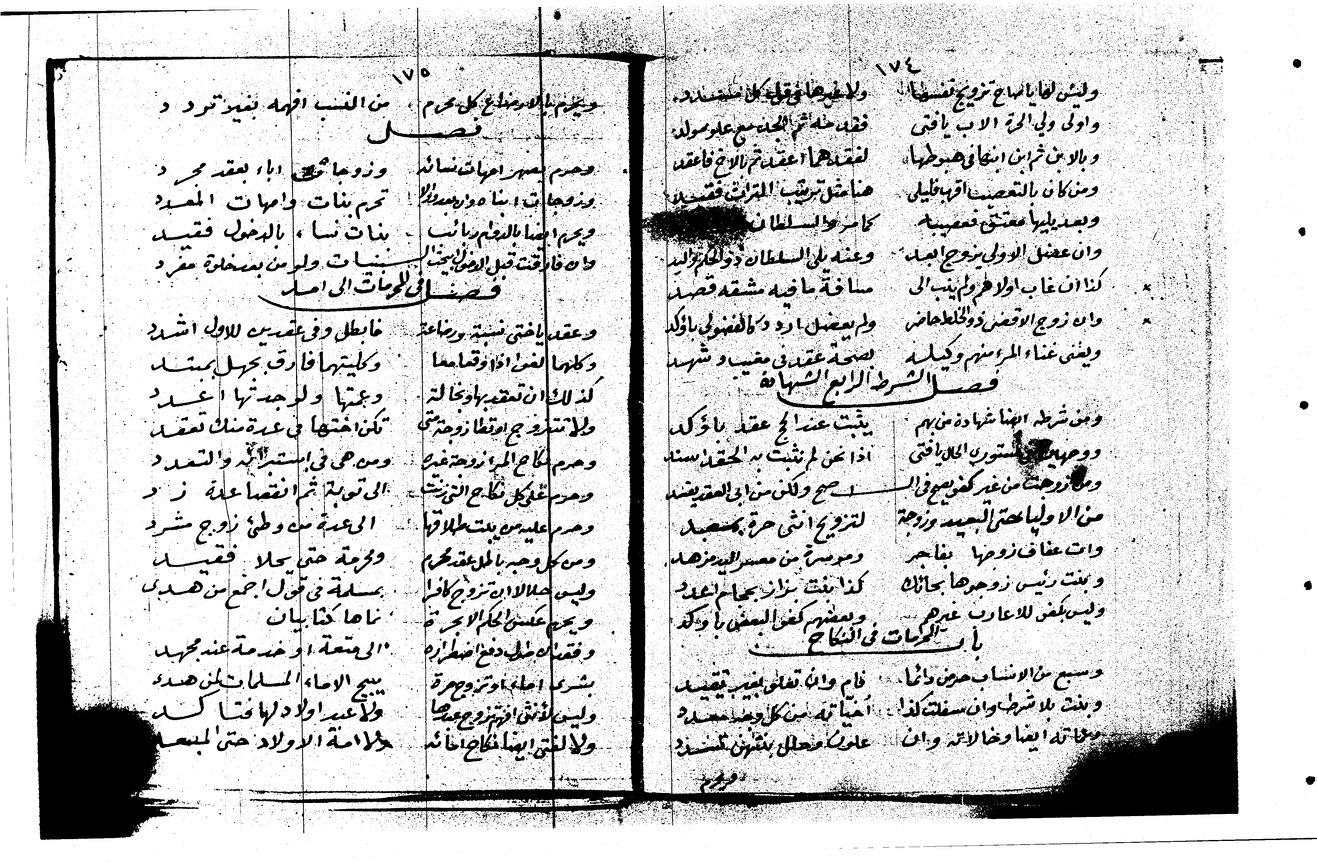 ١٧٤
وليس لها يا صاح تزويج نفسها ولا غيرها في قول كل مسدد
واولى ولي الحرة الاب يا فتى فقد منه ثم الجد مع علو مولد
وبالابن ثم ابن ابنها في هبوطها لفقدهما اعقد ثم بالاخ فاعقد
ومن كان بالتعصيب اقربها يلي هنا مثل ترتيب التراث فقيد
وبعد يليها معتق فعصيبه كما مر والسلطان
وان عضل الاولى يزوج ابعد وعنه يلي السلطان ذو الحكم واليد
كذا ان غاب اولاهم ولم ينب الى مسافة ما فيه مشقة قصد
وان زوج الاقصى ذو الخلط حاضر ولم يعضل اردد كالفضولي باوكد
ويغني غناء المرء منهم وكيله بصحة عقد في مغيب ومشهد
فصل الشرط الرابع الشهادة
ومن شرطه ايضا شهادة من بهم يثبت عند الحج عقد باوكد
ووجهين في مستوري الحال يا فتى اذا نحن لم نثبت به الحقد اسند
ومن زوجت من غير كفو يصح في الـ ـصحيح ولكن من ابى العقد يفسد
من الاوليا حتى البعيد وزوجة لتزويج انثى حرة بمعبد
وذات عفاف زوجها بفاجر وموسرة من معسر اليد مزهد
وبنت رئيس زوجوها بحائك كذا بنت بزاز بحجام اعدد
وليس بكفو للاعارب غيرهم وبعضهم كفو البعض باوكد
باب المحرمات في النكاح
وسبع من الانساب حرمن دائما فام وان تعلو بغير تقيد
وبنت بلا شرط وان سفلت كذا اخياته من كل وجه معدد
وعماته ايضا وخالاته وان علون وحلل بنتهن تسدد
وحرم
١٧٥
ويحرم بالارضاع كل محرم من النسب افهمه بغير تردد
فصل
وحرم بصهر امهات نسائه وزوجات اباء بعقد مجرد
وزوجات ابناه وان بعدوا ولا تحرم بنات وامهات المعدد
ويحرم ايضا بالدوام ربائب بنات نساء بالدخول فقيد
وان فارقت قبل الدخول ابحن البنات ولو من بعد خلوة مفرد
فصل في المحرمات الى امد
وعقد باختي نسبة ورضاعة فابطل وفي عقدين للاول اشدد
وكلهما لغون اذا وقعا معا وكليتهما فارق بجهل بمبتد
كذلك ان تعقد بها وبخالة وعمتها ولوجدتها اعدد
ولا تتزوج او تطا زوجة متى تكن اختها في عدة منك تعقد
وحرم نكاح المرء زوجة غيره ومن هي في استبرائه والتعدد
وحرم على كل نكاح التي زنت الى توبة ثم انقضا عدة زد
وحرم عليه من يبت طلاقها الى عدة من وطئ زوج مشرد
ومن كل وجه باطل عقد محرم ومحرمة حتى يحلا فقيد
وليس حلالا ان تزوج كافرا بمسلمة في قول اجمع من هدي
ويحرم عكس الحكم الا بحرة نماها كتابيان
وفقدان طول دفع اضطراره الى متعة او خدمة عند مجهد
بشرى اماء او تزوج حرة يبيح الاماء المسلمات لمن هدي
وليس لانثى افهم تزوج عبدها ولا عبد اولاد لها فتاكد
ولا لفتى ايضا نكاح امائه ولا امة الاولاد حتى المبعد